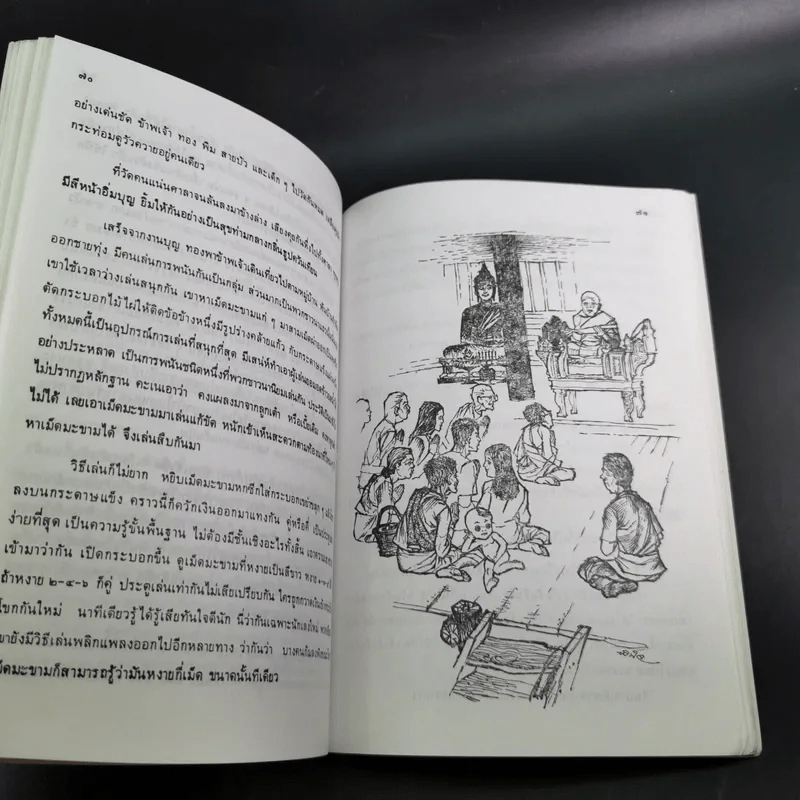 ๗๐
อย่างเด่นชัด ข้าพเจ้า ทอง พิม สายบัว และเด็ก ๆ ไปวัดกันหมด
กระท่อมดูรัวควายอยู่คนเดียว
ที่วัดคนแน่นศาลาจนล้นลงมาข้างล่าง เสียงคุยกัน
มีสีหน้าอิ่มบุญ ยิ้มให้กันอย่างเป็นสุขท่ามกลางกลิ่นธูปควันเทียน
เสร็จจากงานบุญ ทองพาข้าพเจ้าเดินเที่ยวไปตามหมู่บ้าน
ออกชายทุ่ง มีคนเล่นการพนันกันเป็นกลุ่ม ส่วนมากเป็นพวกชาวนา
เขาใช้เวลาว่างเล่นสนุกกัน เขาหาเม็ดมะขามแก่ ๆ มาสามเม็ดผ่าออก
ตัดกระบอกไม้ไผ่ให้ติดข้อข้างหนึ่งมีรูปร่างคล้ายแก้ว กับกระดาษแข็ง
ทั้งหมดนี้เป็นอุปกรณ์การเล่นที่สนุกที่สุด มีเสน่ห์ทำเอาผู้เล่น
อย่างประหลาด เป็นการพนันชนิดหนึ่งที่พวกชาวนานิยมเล่นกัน
ไม่ปรากฏหลักฐาน คะเนเอาว่า คงแผลงมาจากลูกเต๋า หรือเบี้ยเดิม
ไม่ได้ เลยเอาเม็ดมะขามมาเล่นแก้ขัด หนักเข้าเห็นสะดวก
หาเม็ดมะขามได้ จึงเล่นสืบกันมา
วิธีเล่นก็ไม่ยาก หยิบเม็ดมะขามหกซีกใส่กระบอกเขย่า
ลงบนกระดาษแข็ง คราวนี้ก็ควักเงินออกมาแทงกัน คู่หรือคี่
ง่ายที่สุด เป็นความรู้ขั้นพื้นฐาน ไม่ต้องมีชั้นเชิงอะไรทั้งสิ้น
เข้ามาว่ากัน เปิดกระบอกขึ้น ดูเม็ดมะขามที่หงายเป็นสีขาว
ถ้าหงาย ๒-๔-๖ ก็คู่ ประตูเล่นเท่ากันไม่เสียเปรียบกัน ใครถูกกวาดเงิน
โขกกันใหม่ นาทีเดียวรู้ได้รู้เสียทันใจดีนัก นี่ว่ากันเฉพาะนักเลงใหม่
ขายังมีวิธีเล่นพลิกแพลงออกไปอีกหลายทาง ว่ากันว่า บางคน
ม็ดมะขามก็สามารถรู้ว่ามันหงายกี่เม็ด ขนาดนั้นทีเดียว
๗๑